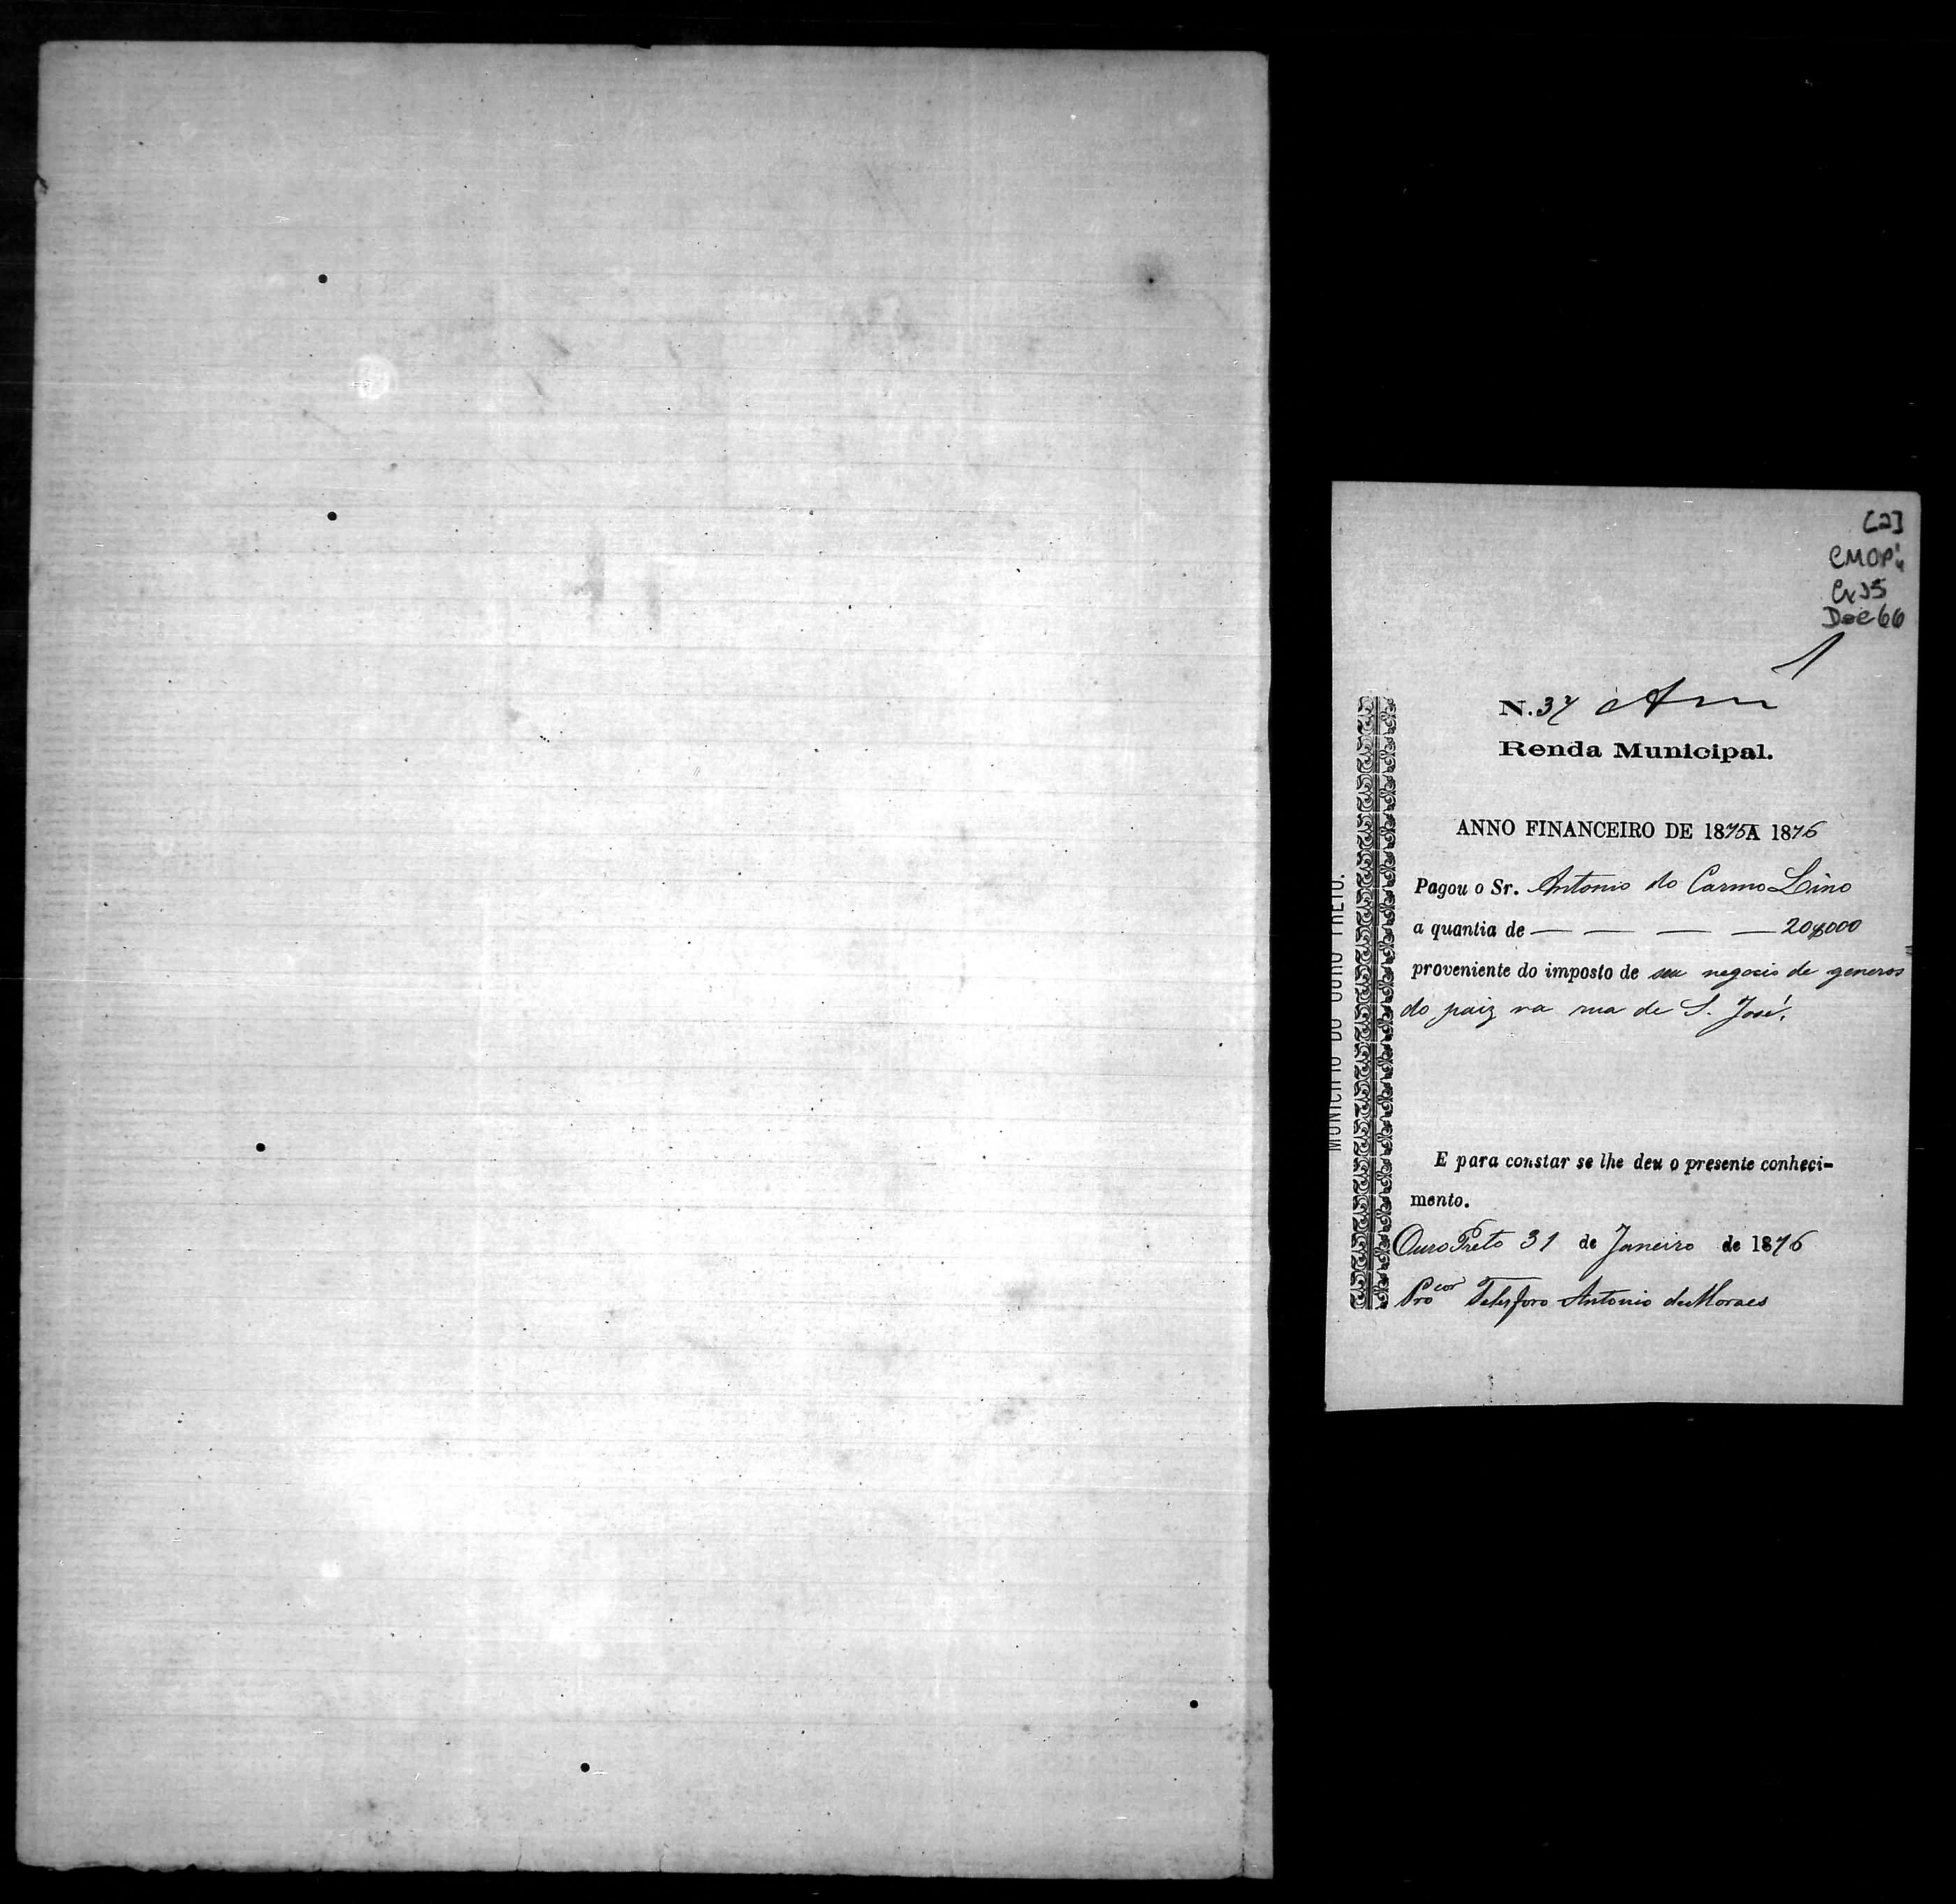 [2]
CMOP
Cx35
Doc 66
1
N.37
Renda Municipal.
ANNO FINANCEIRO DE 1875 A 1876
Pagou o Sr. Antonio do Carmo Lino
a quantia de — — — — 20$000
proveniente do imposto de seu negocio de generos
do paiz na rua de S. José.
E para constar se lhe deu o presente conheci-
mento.
Ouro Preto 31 de Janeiro de 1876
Procor Telesforo Antonio de Moraes
MUNICIPIO DO OURO PRETO.